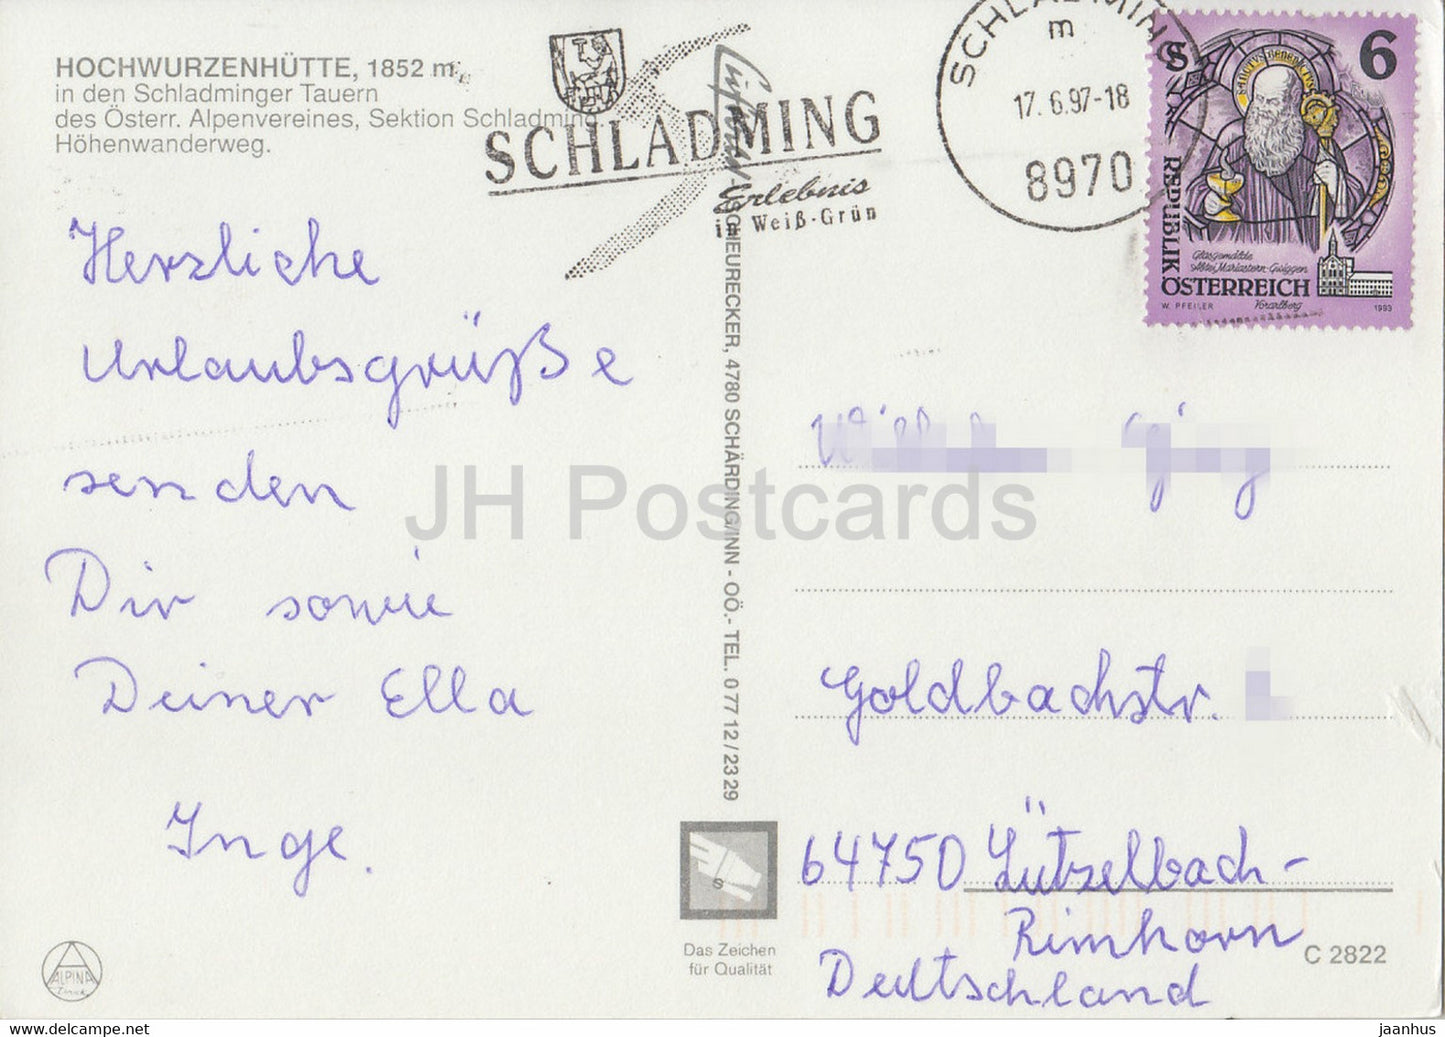 HOCHWURZENHÜTTE, 1852 m
in den Schladminger Tauern
des Österr. Alpenvereines, Sektion Schladming
Höhenwanderweg.
SCHLADMING
Erlebnis
in Weiß-Grün
SCHLADMING
m
17.6.97-18
8970
S 6
SANCTVS BENEDICTVS
REPUBLIK
ÖSTERREICH
Glasgemälde
Abtei Mariastern-Gwiggen
Vorarlberg
W. PFEILER 1993
Herzliche
Urlaubsgrüße
senden
Dir sowie
Deiner Ella
Inge.
SCHEURECKER, 4780 SCHÄRDING/INN - OÖ. - TEL. 0 77 12 / 23 29
JH Postcards
Goldbachstr.
64750 Lützelbach-
Rimhorn
Deutschland
ALPINA
S
Das Zeichen
für Qualität
C 2822
www.delcampe.net
jaanhus